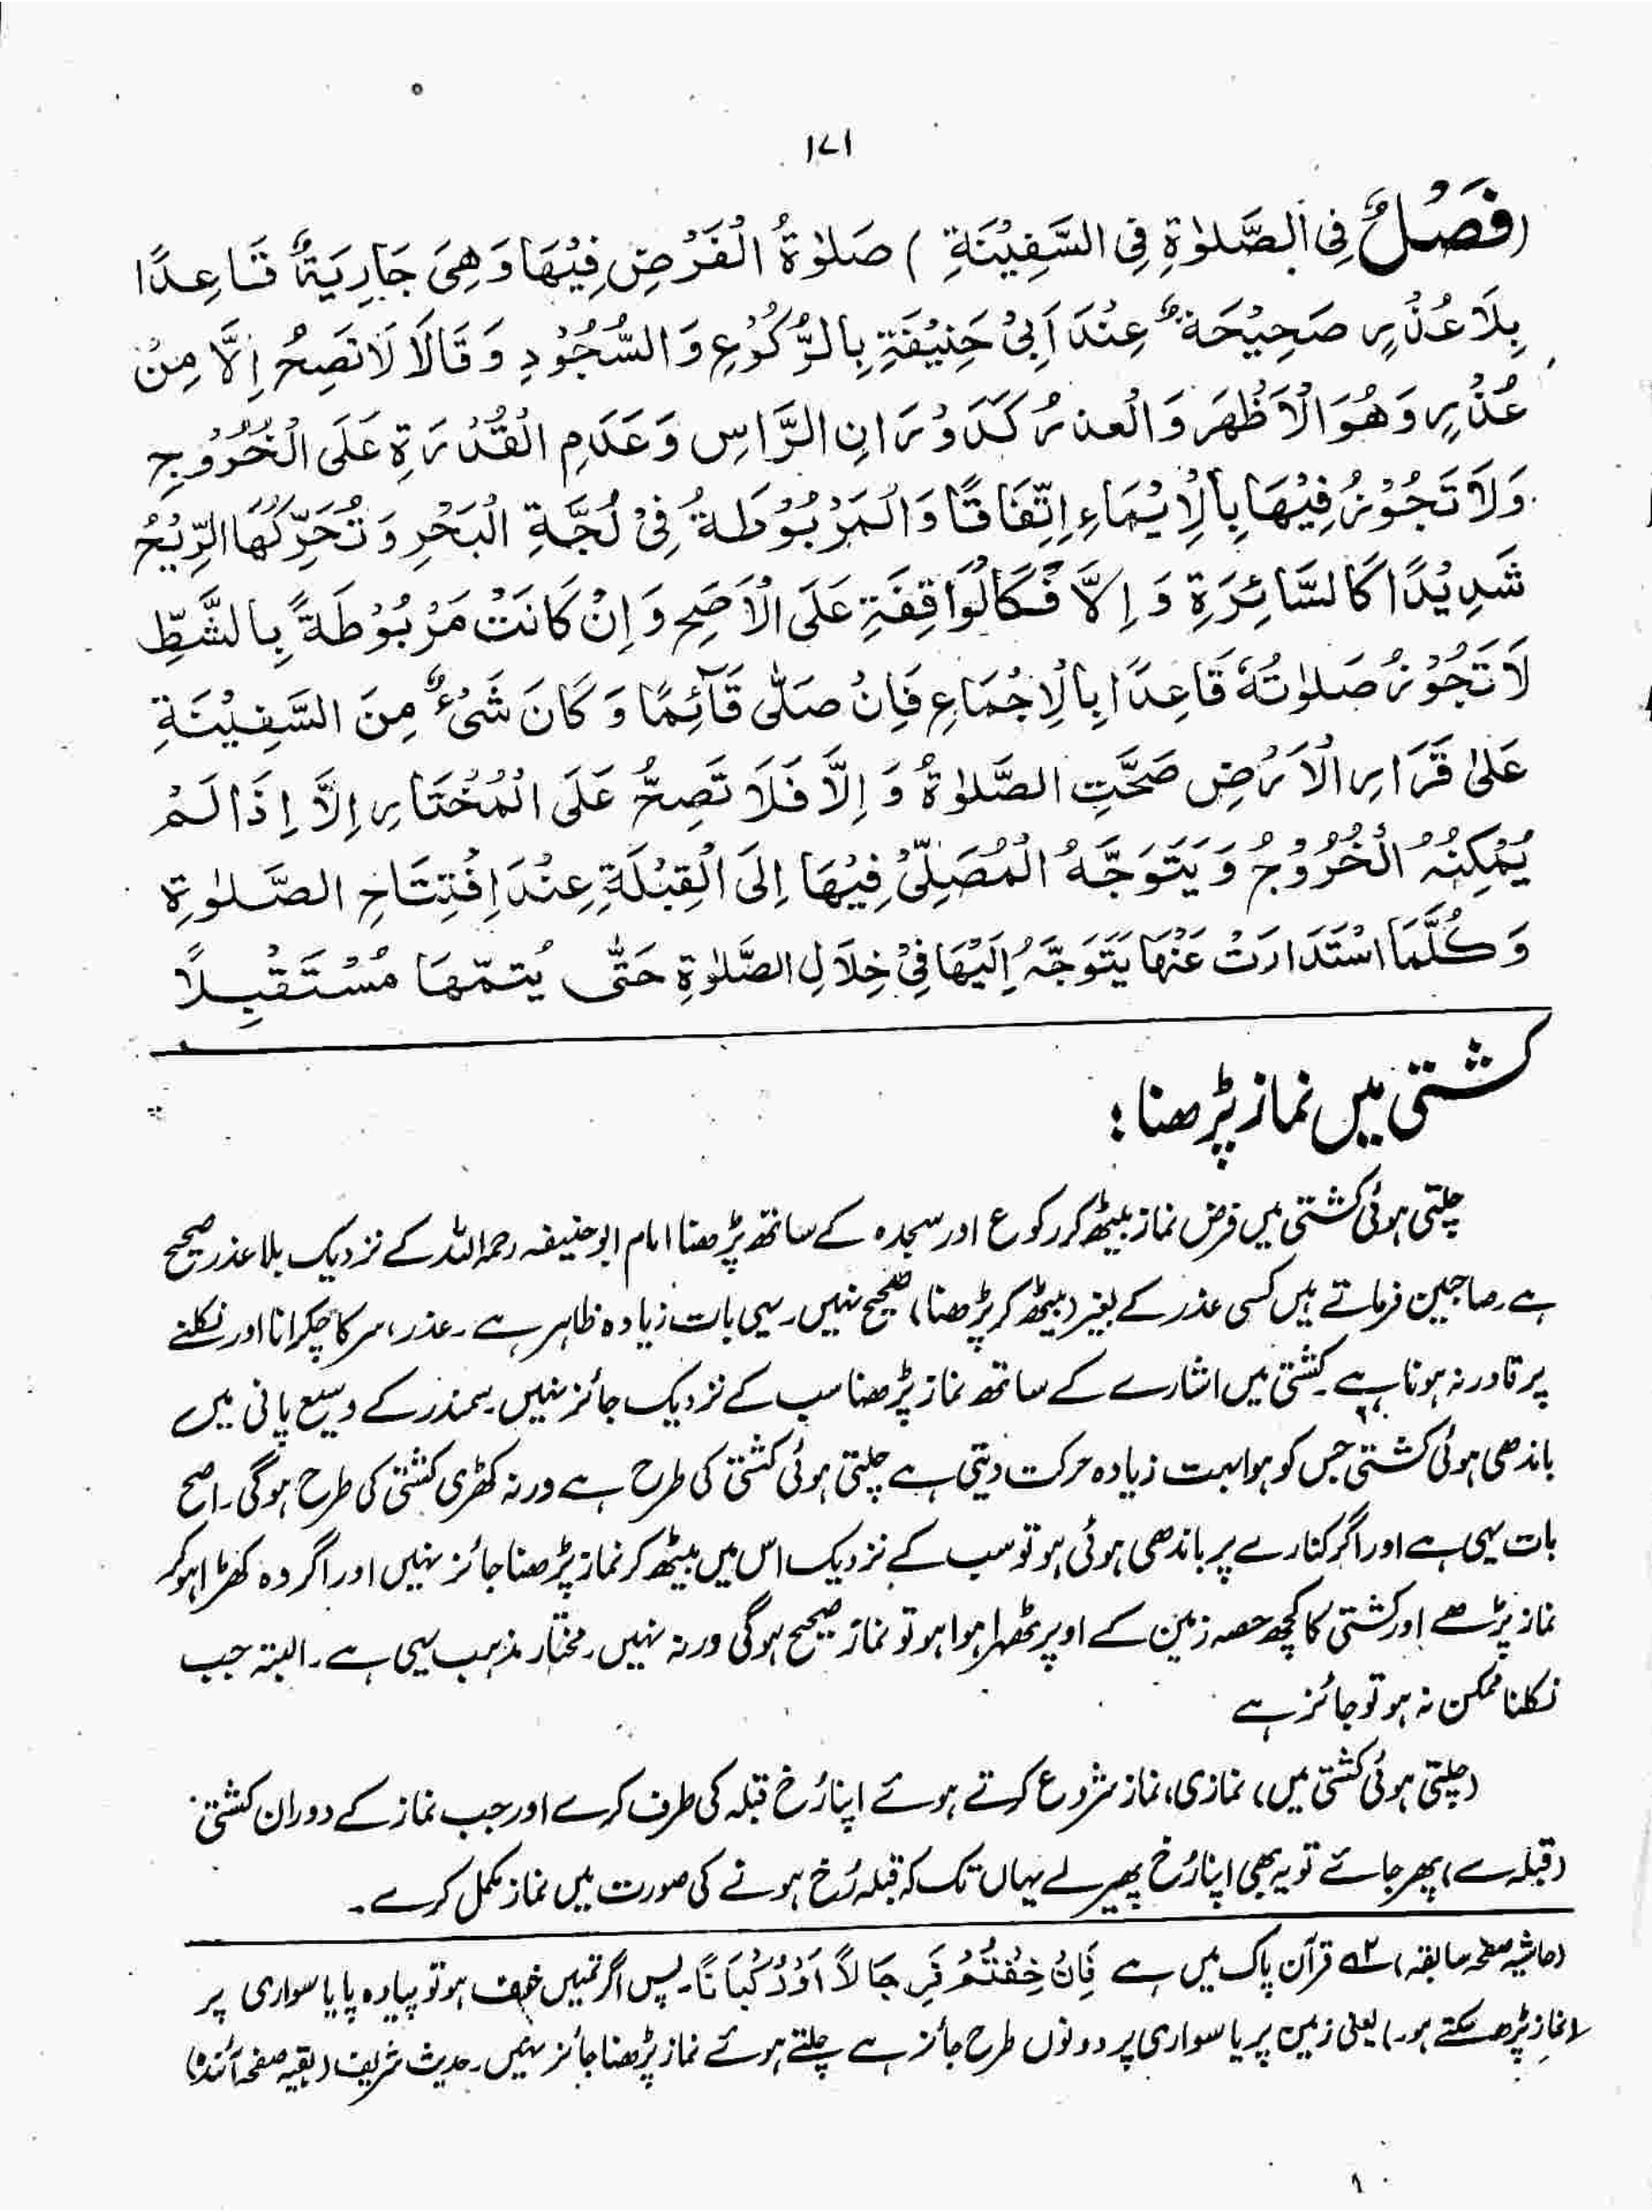 ۱۷۱
(فَصْلٌ فِی الصَّلٰوةِ فِی السَّفِیْنَةِ) صَلٰوةُ الْفَرْضِ فِیْهَا وَهِیَ جَارِیَةٌ قَاعِدًا
بِلَا عُذْرٍ صَحِیْحَةٌ عِنْدَ اَبِیْ حَنِیْفَةِ بِالرُّكُوْعِ وَالسُّجُوْدِ وَقَالَا لَا تَصِحُّ اِلَّا مِنْ
عُذْرٍ وَهُوَ الْاَظْهَرُ وَالْعذرُ كَدَوْرَانِ الرَّاسِ وَعَدَمِ الْقُدْرَةِ عَلَی الْخُرُوْجِ
وَلَا تَجُوْزُ فِیْهَا بِالْاِیْمَاءِ اِتِّفَاقًا وَالْمَرْبُوْطَةُ فِیْ لُجَّةِ الْبَحْرِ وَتُحَرِّكُهَا الرِّیْحُ
شَدِیْدًا كَالسَّائِرَةِ وَاِلَّا فَكَالْوَاقِفَةِ عَلَی الْاَصَحِ وَاِنْ كَانَتْ مَرْبُوْطَةً بِالشَّطِّ
لَا تَجُوْزُ صَلٰوتُهٗ قَاعِدًا بِالْاِجْمَاعِ فَاِنْ صَلّٰی قَآئِمًا وَكَانَ شَیْءٌ مِنَ السَّفِیْنَةِ
عَلٰی قَرَارِ الْاَرْضِ صَحَّتِ الصَّلٰوةُ وَاِلَّا فَلَا تَصِحُّ عَلَی الْمُخْتَارِ اِلَّا اِذَا لَمْ
یُمْكِنْهُ الْخُرُوْجُ وَیَتَوَجَّهُ الْمُصَلِّیْ فِیْهَا اِلَی الْقِبْلَةِ عِنْدَ اِفْتِتَاحِ الصَّلٰوةِ
وَكُلَّمَا اسْتَدَارَتْ عَنْهَا یَتَوَجَّهُ اِلَیْهَا فِیْ خِلَالِ الصَّلٰوةِ حَتّٰی یُتمّهَا مُسْتَقْبِلًا
کشتی میں نماز پڑھنا:
چلتی ہوئی کشتی میں فرض نماز بیٹھ کر رکوع اور سجدہ کے ساتھ پڑھنا امام ابوحنیفہ رحمہ اللہ کے نزدیک بلا عذر صحیح
ہے۔ صاحبین فرماتے ہیں کسی عذر کے بغیر (بیٹھ کر پڑھنا) صحیح نہیں۔ یہی بات زیادہ ظاہر ہے۔ عذر، سر کا چکرانا اور نکلنے
پر قادر نہ ہونا ہے۔ کشتی میں اشارے کے ساتھ نماز پڑھنا سب کے نزدیک جائز نہیں۔ سمندر کے وسیع پانی میں
باندھی ہوئی کشتی جس کو ہوا بہت زیادہ حرکت دیتی ہے چلتی ہوئی کشتی کی طرح ہے ورنہ کھڑی کشتی کی طرح ہوگی۔ اصح
بات یہی ہے اور اگر کنارے پر باندھی ہوئی ہو تو سب کے نزدیک اس میں بیٹھ کر نماز پڑھنا جائز نہیں اور اگر وہ کھڑا ہو کر
نماز پڑھے اور کشتی کا کچھ حصہ زمین کے اوپر ٹھہرا ہوا ہو تو نماز صحیح ہوگی ورنہ نہیں۔ مختار مذہب یہی ہے۔ البتہ جب
نکلنا ممکن نہ ہو تو جائز ہے
(چلتی ہوئی کشتی میں) نمازی، نماز شروع کرتے ہوئے اپنا رُخ قبلہ کی طرف کرے اور جب نماز کے دوران کشتی
(قبلہ سے) پھر جائے تو یہ بھی اپنا رُخ پھیر لے یہاں تک کہ قبلہ رُخ ہونے کی صورت میں نماز مکمل کرے۔
(حاشیہ صفحہ سابقہ) ۳؎ قرآن پاک میں ہے فَاِنْ خِفْتُمْ فَرِجَالًا اَوْ رُكْبَانًا۔ پس اگر تمہیں خوف ہو تو پیادہ پا یا سواری پر
(نماز پڑھ سکتے ہو۔) یعنی زمین پر یا سواری پر دونوں طرح جائز ہے چلتے ہوئے نماز پڑھنا جائز نہیں۔ حدیث شریف (بقیہ صفحہ آئندہ)